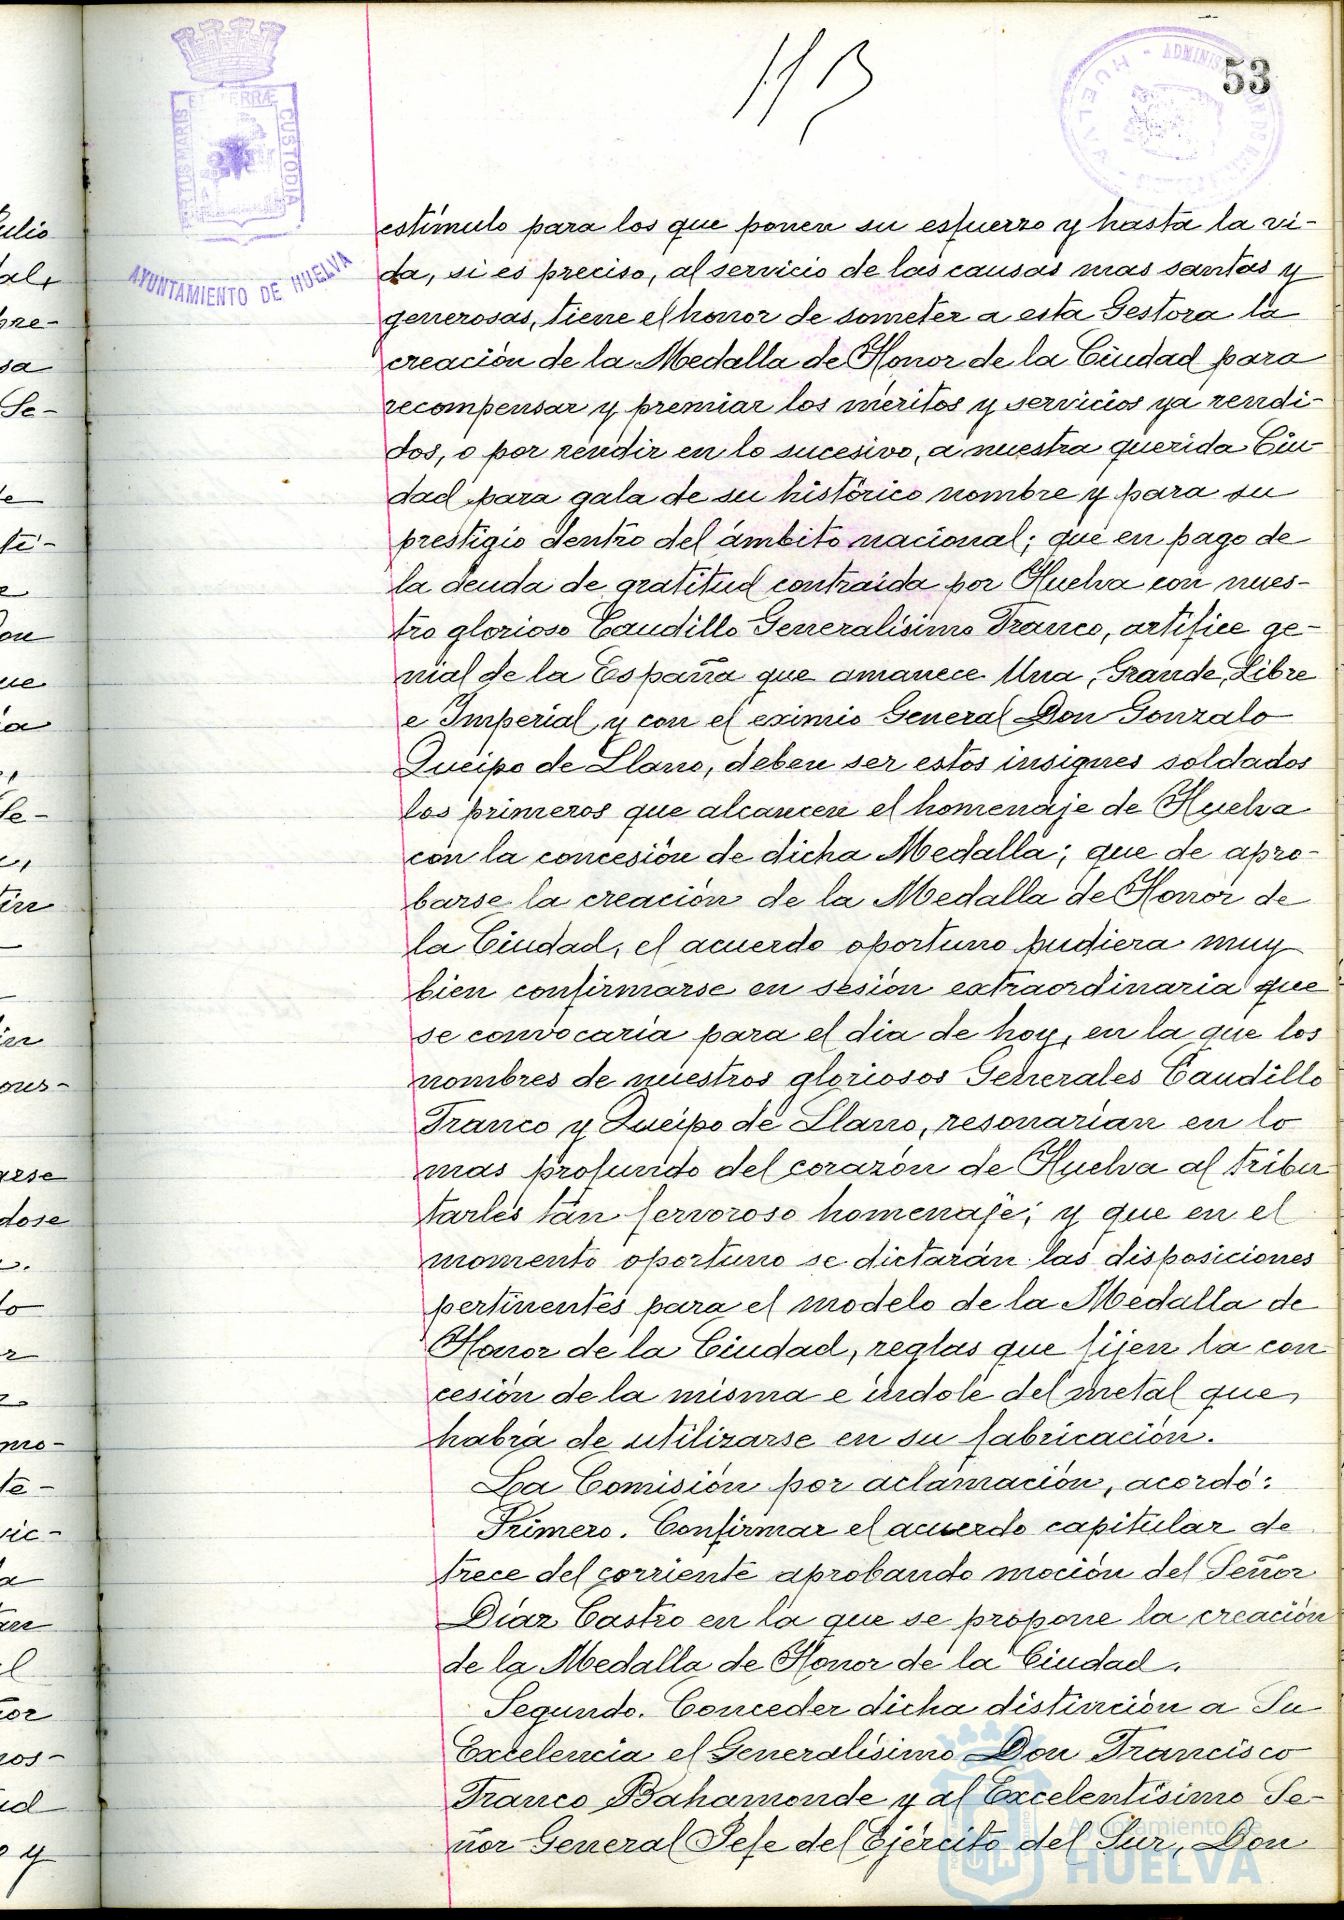 113
53
PORTUS MARIS ET TERRÆ CUSTODIA
AYUNTAMIENTO DE HUELVA
HUELVA
estímulo para los que ponen su esfuerzo y hasta la vi-
da, si es preciso, al servicio de las causas mas santas y
generosas, tiene el honor de someter a esta Gestora la
creación de la Medalla de Honor de la Ciudad para
recompensar y premiar los méritos y servicios ya rendi-
dos, o por rendir en lo sucesivo, a nuestra querida Ciu-
dad para gala de su histórico nombre y para su
prestigio dentro del ámbito nacional; que en pago de
la deuda de gratitud contraída por Huelva con nues-
tro glorioso Caudillo Generalísimo Franco, artífice ge-
nial de la España que amanece Una, Grande, Libre
e Imperial y con el eximio General Don Gonzalo
Queipo de Llano, deben ser estos insignes soldados
los primeros que alcancen el homenaje de Huelva
con la concesión de dicha Medalla; que de apro-
barse la creación de la Medalla de Honor de
la Ciudad, el acuerdo oportuno pudiera muy
bien confirmarse en sesión extraordinaria que
se convocaría para el día de hoy, en la que los
nombres de nuestros gloriosos Generales Caudillo
Franco y Queipo de Llano, resonarían en lo
mas profundo del corazón de Huelva al tribu
tarles tán fervoroso homenaje; y que en el
momento oportuno se dictarán las disposiciones
pertinentes para el modelo de la Medalla de
Honor de la Ciudad, reglas que fijen la con
cesión de la misma e índole del metal que
habrá de utilizarse en su fabricación.
La Comisión por aclamación, acordó:
Primero. Confirmar el acuerdo capitular de
trece del corriente aprobando moción del Señor
Díaz Castro en la que se propone la creación
de la Medalla de Honor de la Ciudad.
Segundo. Conceder dicha distinción a Su
Excelencia el Generalísimo Don Francisco
Franco Bahamonde y al Excelentísimo Se-
ñor General Jefe del Ejército del Sur, Don
Ayuntamiento de
HUELVA